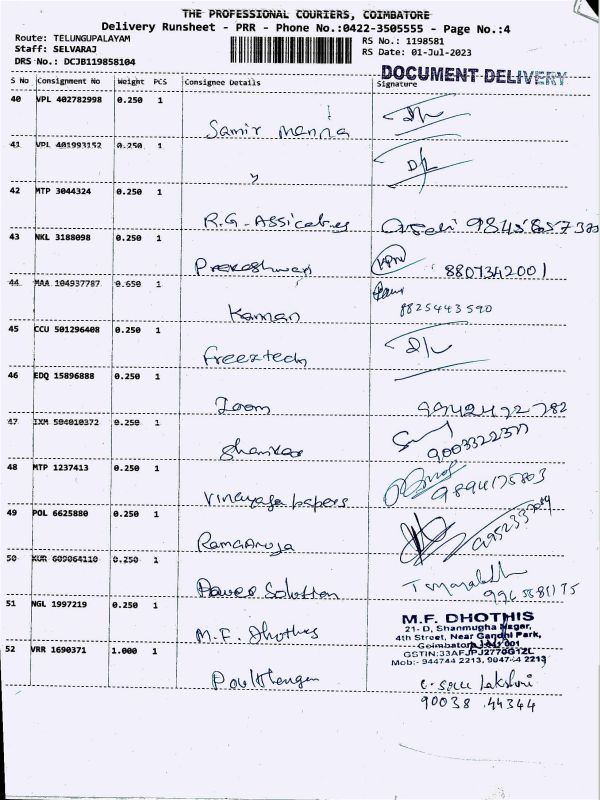 THE PROFESSIONAL COURIERS, COIMBATORE
Delivery Runsheet - PRR - Phone No.:0422-3505555 - Page No.:4
Route: TELUNGUPALAYAM RS No.: 1198581
Staff: SELVARAJ RS Date: 01-Jul-2023
DRS No.: DCJB119858104
DOCUMENT DELIVERY
S No Consignment No Weight PCS Consignee Details Signature
40 VPL 402782998 0.250 1
Samir Manna
41 VPL 401993152 0.250 1
"
42 MTP 3044324 0.250 1
R.G-Assicates
43 NKL 3188098 0.250 1
Prekeshwari 8807342001
44 MAA 104937787 0.650 1
Kannan 8825443590
45 CCU 501296408 0.250 1
Freeztech
46 EDQ 15896888 0.250 1
Zoom 99424 22782
47 IXM 504010372 0.250 1
Shankar 9003322377
48 MTP 1237413 0.250 1
Vinayaga papers 9894175803
49 POL 6625880 0.250 1
Ramanuja
50 KUR 609064110 0.250 1
Power Solution
51 NGL 1997219 0.250 1
M.F. Dhothis
M.F. DHOTHIS
21- D, Shanmugha Nagar,
4th Street, Near Gandhi Park,
Coimbatore 641 001
GSTIN:33AFJPJ2770G1ZL
Mob:- 944744 2213, 904744 2213
52 VRR 1690371 1.000 1
Paulthangam
90038 44344